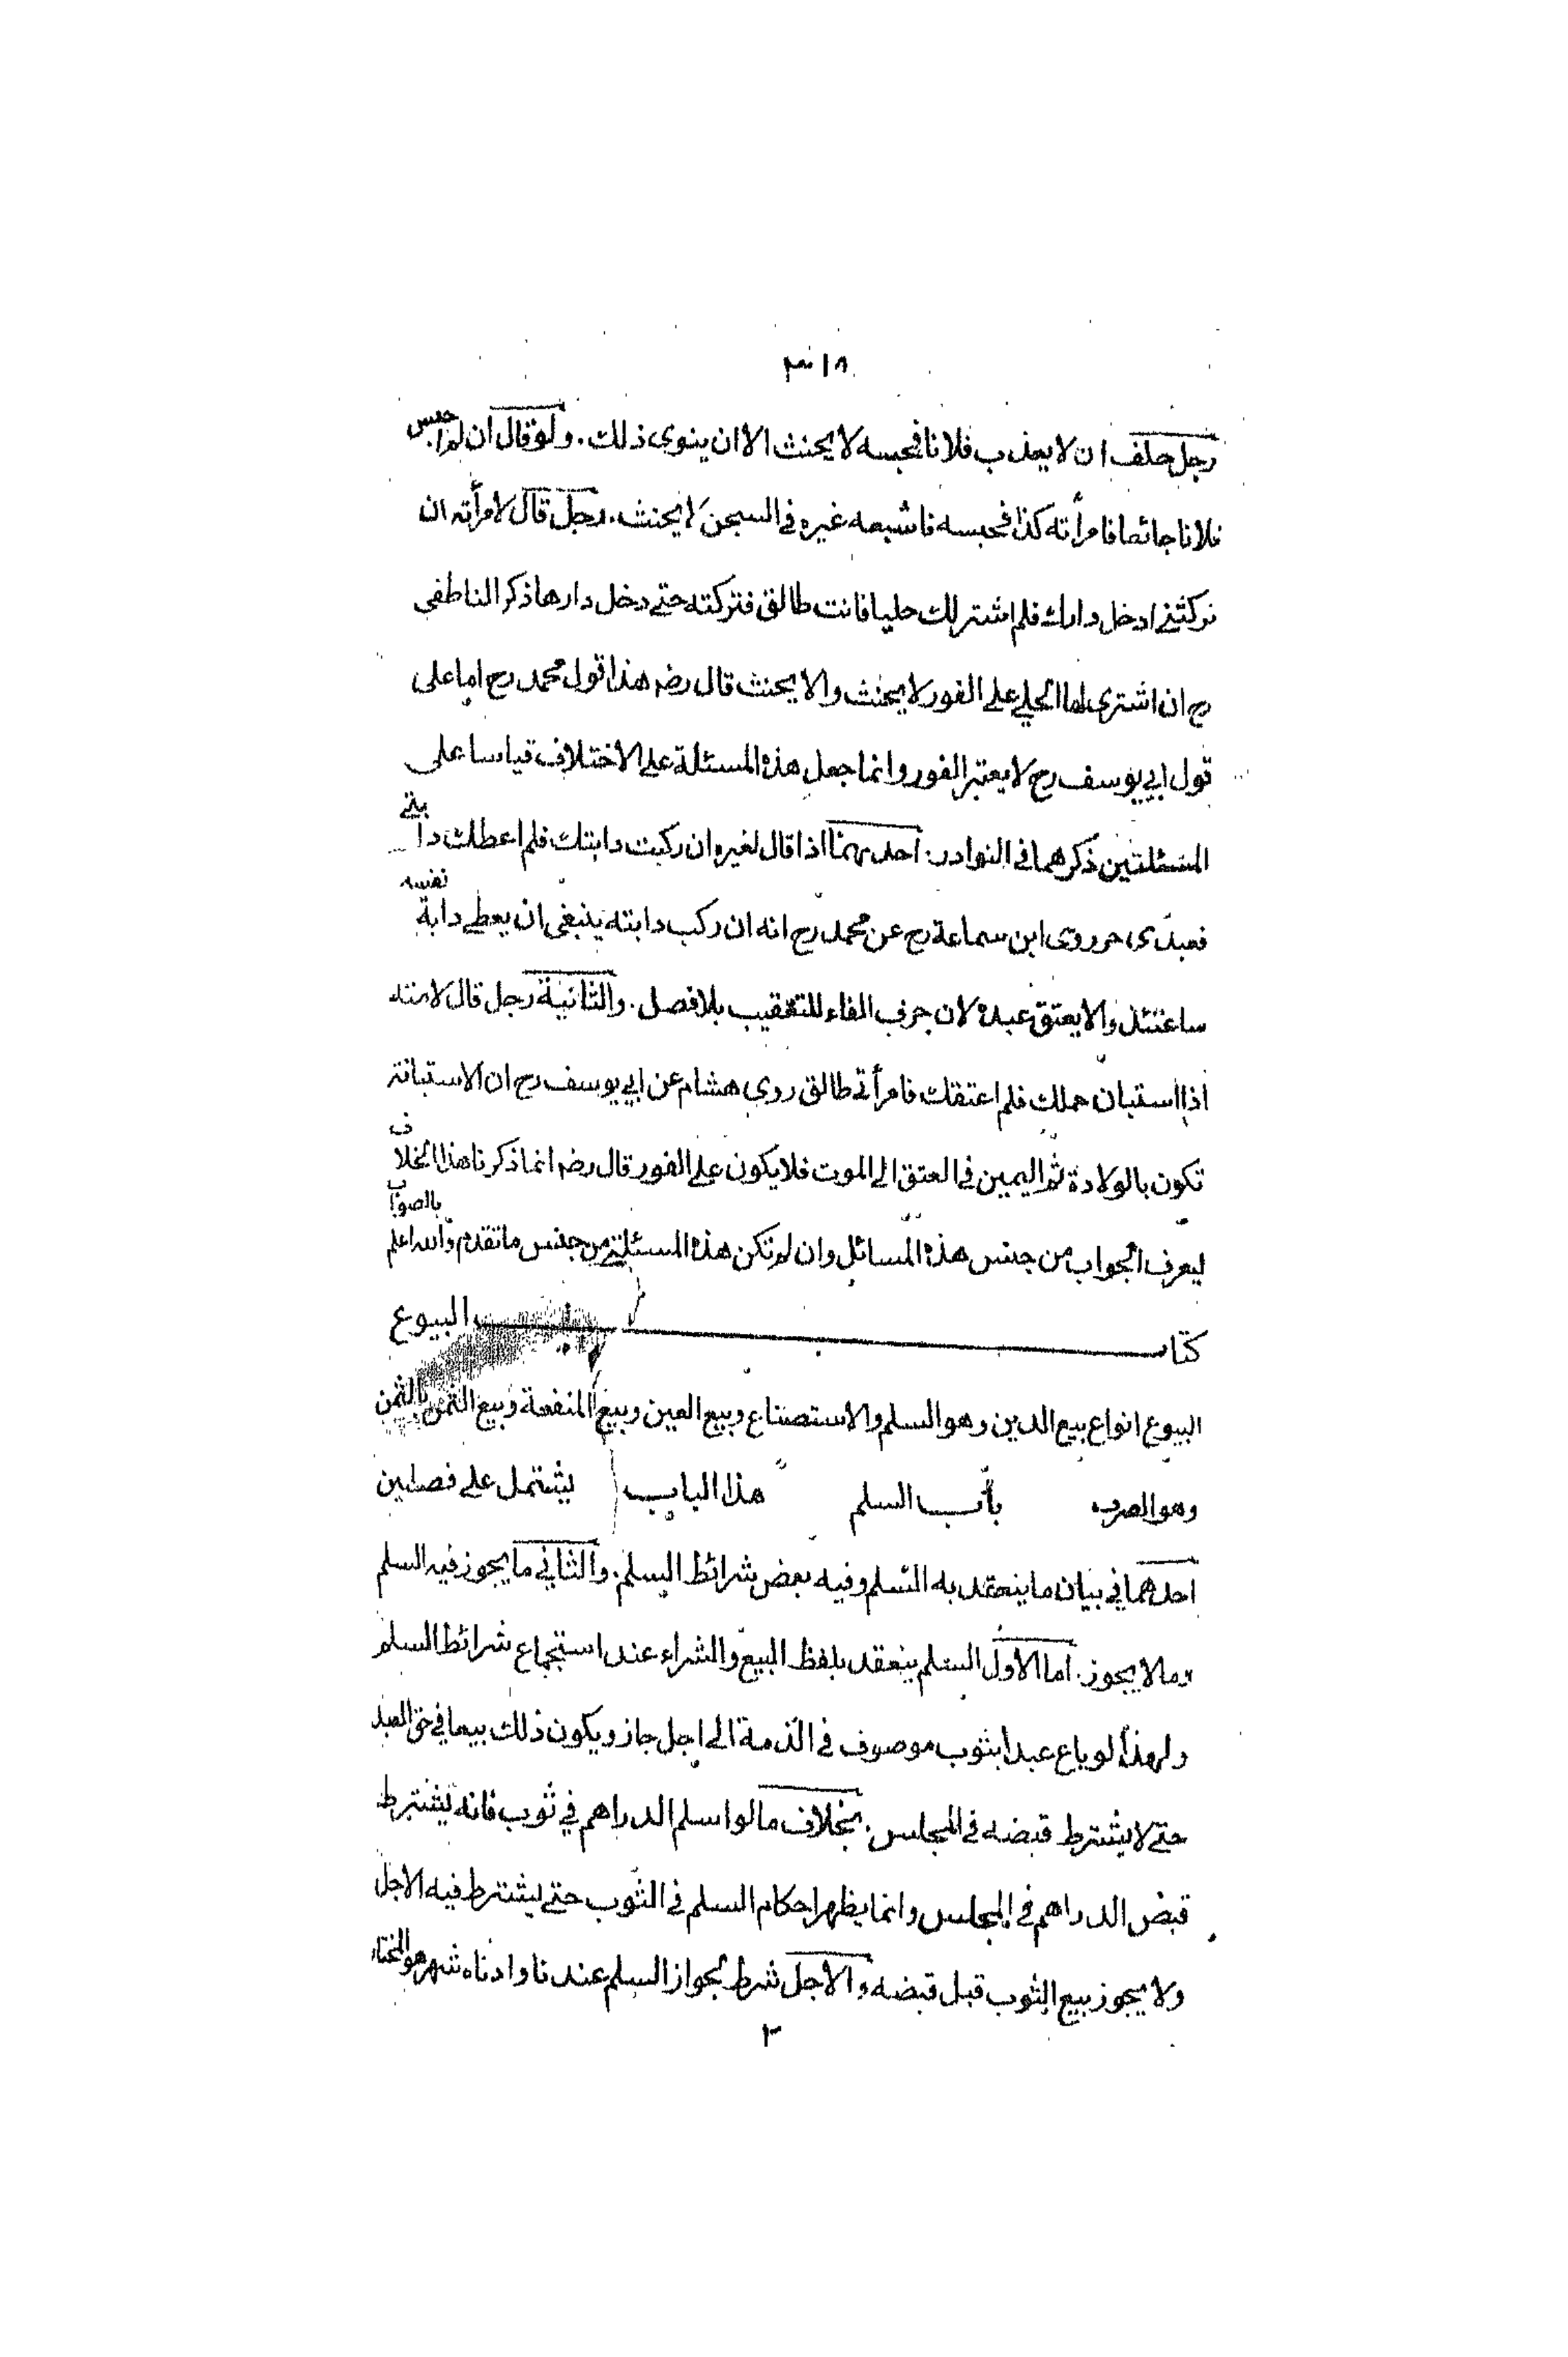 ٣١٨
رجل حلف ان لا يعذب فلانا فحبسه لا يحنث الا ان ينوى ذلك . ولو قال ان لم احبس
فلانا جائعا فامرأته كذا فحبسه فاشبعه غيره في السجن لا يحنث . رجل قال لامرأته ان
تركتني ادخل دارك فلم اشتر لك حليا فانت طالق فتركته حتى دخل دارها ذكر الناطفي
رح ان اشترى لها الحلي على الفور لا يحنث والا يحنث قال رضه هذا قول محمد رح اما على
قول ابي يوسف رح لا يعتبر الفور وانما جعل هذه المسئلة على الاختلاف قياسا على
المسئلتين ذكرهما في النوادر . احدىهما اذا قال لغيره ان ركبت دابتك فلم اعطك دابتي
فعبدى حر روى ابن سماعة رح عن محمد رح انه ان ركب دابته ينبغى ان يعطى دابة نفسه
ساعتئذ والا يعتق عبده لان حرف الفاء للتعقيب بلا فصل . والثانية رجل قال لامته
اذا استبان حملك فلم اعتقك فامرأتي طالق روى هشام عن ابي يوسف رح ان الاستبانة
تكون بالولادة ثم اليمين في العتق الى الموت فلا يكون على الفور قال رضه انما ذكرنا هذا الخلاف
ليعرف الجواب من جنس هذه المسائل وان لم تكن هذه المسئلة من جنس ما تقدم والله اعلم بالصواب
كتاب البيوع
البيوع انواع بيع الدين وهو السلم والاستصناع وبيع العين وبيع المنفعة وبيع الثمن بالثمن
وهو الصرف باب السلم هذا الباب يشتمل على فصلين
احدهما في بيان ما ينعقد به السلم وفيه بعض شرائط السلم . والثاني ما يجوز فيه السلم
وما لا يجوز . اما الاول السلم ينعقد بلفظ البيع والشراء عند استجماع شرائط السلم
ولهذا لو باع عبدا بثوب موصوف في الذمة الى اجل جاز ويكون ذلك بيعا في حق العبد
حتى لا يشترط قبضه في المجلس . بخلاف ما لو اسلم الدراهم في ثوب فانه يشترط
قبض الدراهم في المجلس وانما يظهر احكام السلم في الثوب حتى يشترط فيه الاجل
ولا يجوز بيع الثوب قبل قبضه والاجل شرط لجواز السلم عندنا وادناه شهر هو المختار